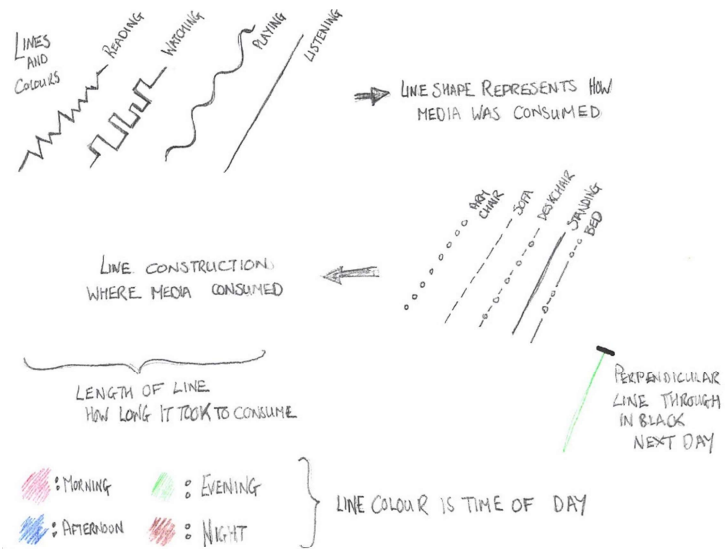 LINES
AND
COLOURS
READING
WATCHING
PLAYING
LISTENING
LINE SHAPE REPRESENTS HOW
MEDIA WAS CONSUMED
ARM
CHAIR
SOFA
DESKCHAIR
STANDING
BED
LINE CONSTRUCTION
WHERE MEDIA CONSUMED
LENGTH OF LINE
HOW LONG IT TOOK TO CONSUME
PERPENDICULAR
LINE THROUGH
IN BLACK
NEXT DAY
: MORNING
: EVENING
: AFTERNOON
: NIGHT
LINE COLOUR IS TIME OF DAY